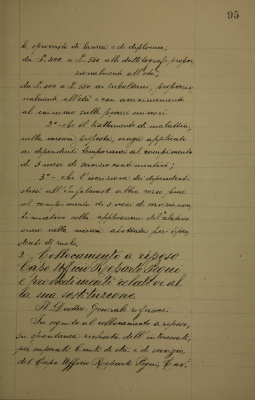 95
e sprovviste di laurea o di diploma;
da L. 400 a L. 550 alle dattilografe propor
zionalmente all'età;
da L. 400 a L. 550 ai subalterni, proporzio
nalmente all'età e con avvicinamento
al comune sulle
2° - che il trattamento di malattia,
nella misura proposta, venga applicato
ai dipendenti temporanei al compimento
di 3 mesi di servizio continuativo;
3° - che l'iscrizione dei dipendenti
stessi all' altra cosa
al compimento di 3 mesi di servizio con
tinuativo sulla applicazione dell'
onere nella misura adottata per i dipen
denti di ruolo.
2 - Collocamento a riposo
Capo Ufficio Roberto Pigni
e provvedimenti relativi al
la sua sostituzione
Il Direttore Generale riferisce:
In seguito al collocamento a riposo,
su spontanea richiesta dell'interessato,
per superati limiti di età e di servizio,
del Capo Ufficio Roberto Pigni, Cav.